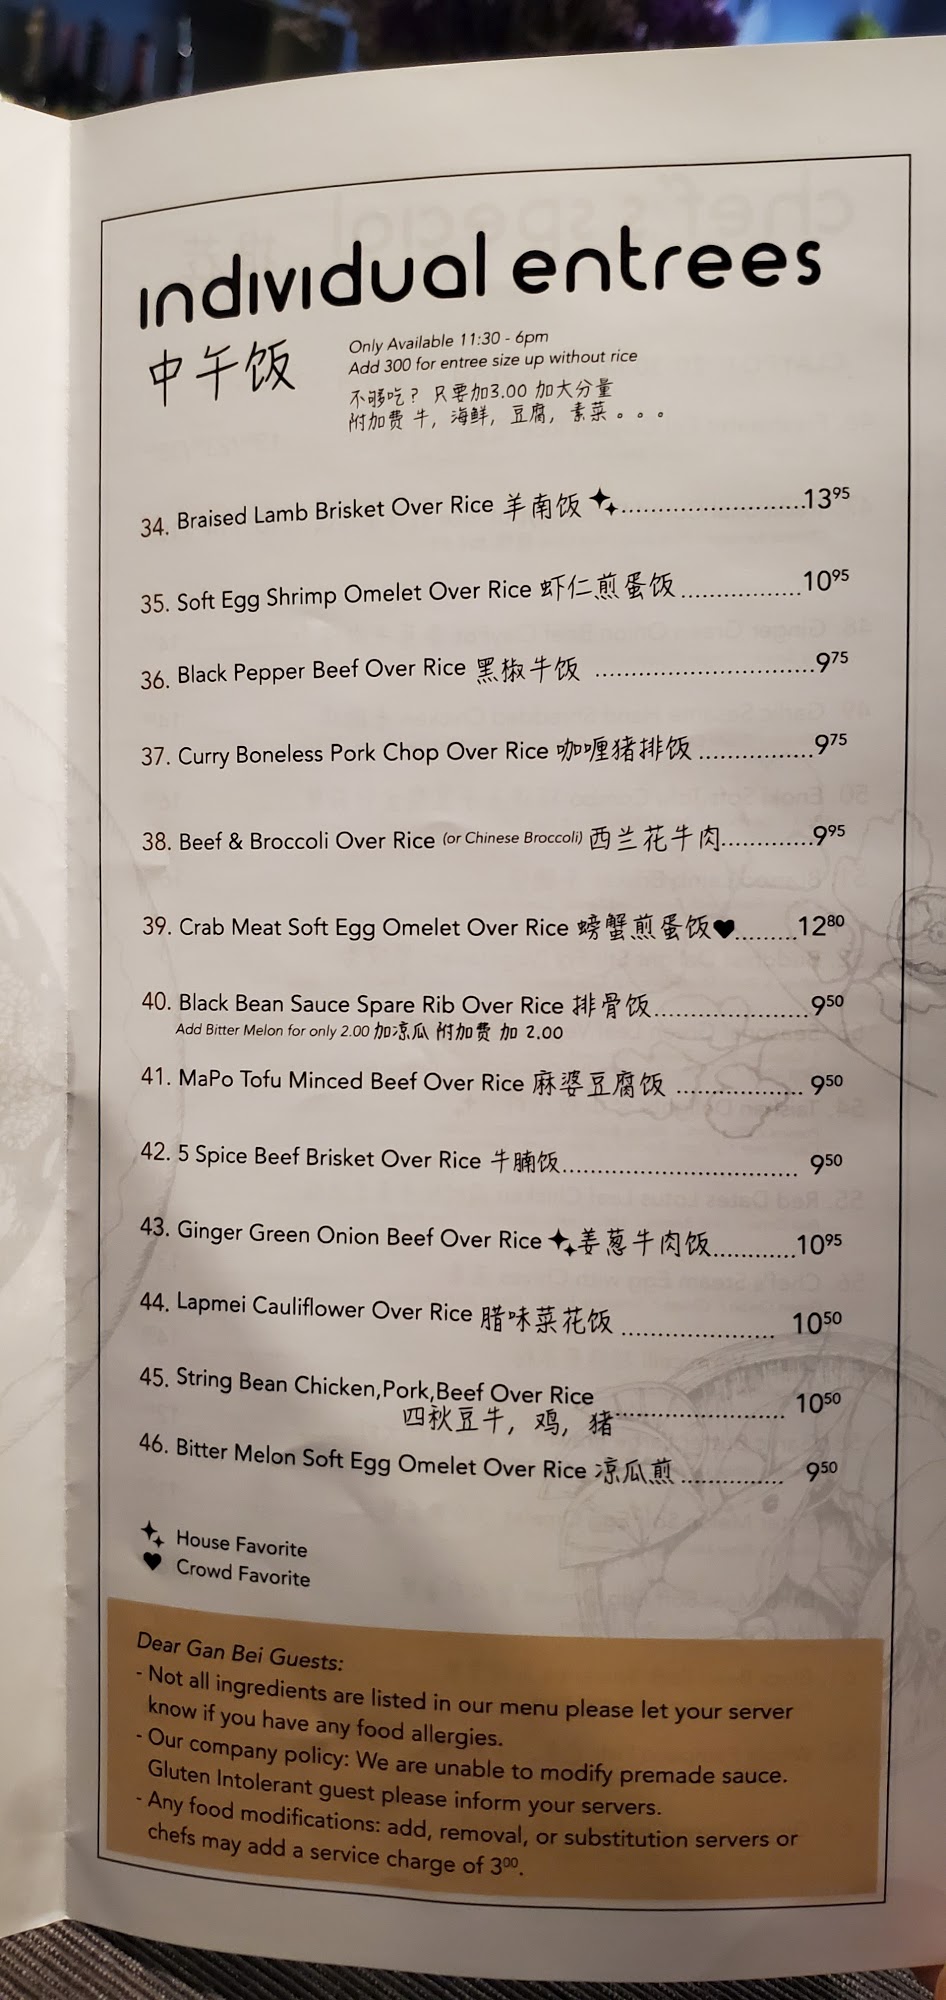 individual entrees
中午饭
Only Available 11:30 - 6pm
Add 300 for entree size up without rice
不够吃? 只要加3.00 加大分量
附加费 牛, 海鲜, 豆腐, 素菜。。。
34. Braised Lamb Brisket Over Rice 羊南饭 13 95
35. Soft Egg Shrimp Omelet Over Rice 虾仁煎蛋饭 10 95
36. Black Pepper Beef Over Rice 黑椒牛饭 9 75
37. Curry Boneless Pork Chop Over Rice 咖喱猪排饭 9 75
38. Beef & Broccoli Over Rice (or Chinese Broccoli) 西兰花牛肉 9 95
39. Crab Meat Soft Egg Omelet Over Rice 螃蟹煎蛋饭 12 80
40. Black Bean Sauce Spare Rib Over Rice 排骨饭 9 50
Add Bitter Melon for only 2.00 加凉瓜 附加费 加 2.00
41. MaPo Tofu Minced Beef Over Rice 麻婆豆腐饭 9 50
42. 5 Spice Beef Brisket Over Rice 牛腩饭 9 50
43. Ginger Green Onion Beef Over Rice 姜葱牛肉饭 10 95
44. Lapmei Cauliflower Over Rice 腊味菜花饭 10 50
45. String Bean Chicken,Pork,Beef Over Rice 10 50
四秋豆牛, 鸡, 猪
46. Bitter Melon Soft Egg Omelet Over Rice 凉瓜煎 9 50
House Favorite
Crowd Favorite
Dear Gan Bei Guests:
- Not all ingredients are listed in our menu please let your server
know if you have any food allergies.
- Our company policy: We are unable to modify premade sauce.
Gluten Intolerant guest please inform your servers.
- Any food modifications: add, removal, or substitution servers or
chefs may add a service charge of 3 00.